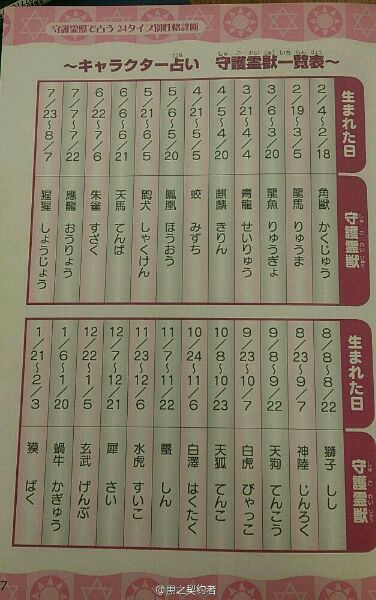 守護霊獣で占う 24タイプ別性格診断
～キャラクター占い 守護霊獣一覧表～
しゅごれいじゅういちらんひょう
生まれた日 守護霊獣
2/4～2/18 角獣 かくじゅう
2/19～3/5 龍馬 りゅうま
3/6～3/20 龍魚 りゅうぎょ
3/21～4/4 青龍 せいりゅう
4/5～4/20 麒麟 きりん
4/21～5/5 蛟 みずち
5/5～5/20 鳳凰 ほうおう
5/21～6/5 豹犬 しゃくけん
6/6～6/21 天馬 てんば
6/22～7/6 朱雀 すざく
7/7～7/22 應龍 おうりょう
7/23～8/7 猩猩 しょうじょう
生まれた日 守護霊獣
8/8～8/22 獅子 しし
8/23～9/7 神陸 じんろく
9/8～9/22 天狗 てんこう
9/23～10/7 白虎 びゃっこ
10/8～10/23 天狐 てんこ
10/24～11/6 白澤 はくたく
11/7～11/22 蜃 しん
11/23～12/6 水虎 すいこ
12/7～12/21 犀 さい
12/22～1/5 玄武 げんぶ
1/6～1/20 蝸牛 かぎゅう
1/21～2/3 獏 ばく
7
@黑之契约者